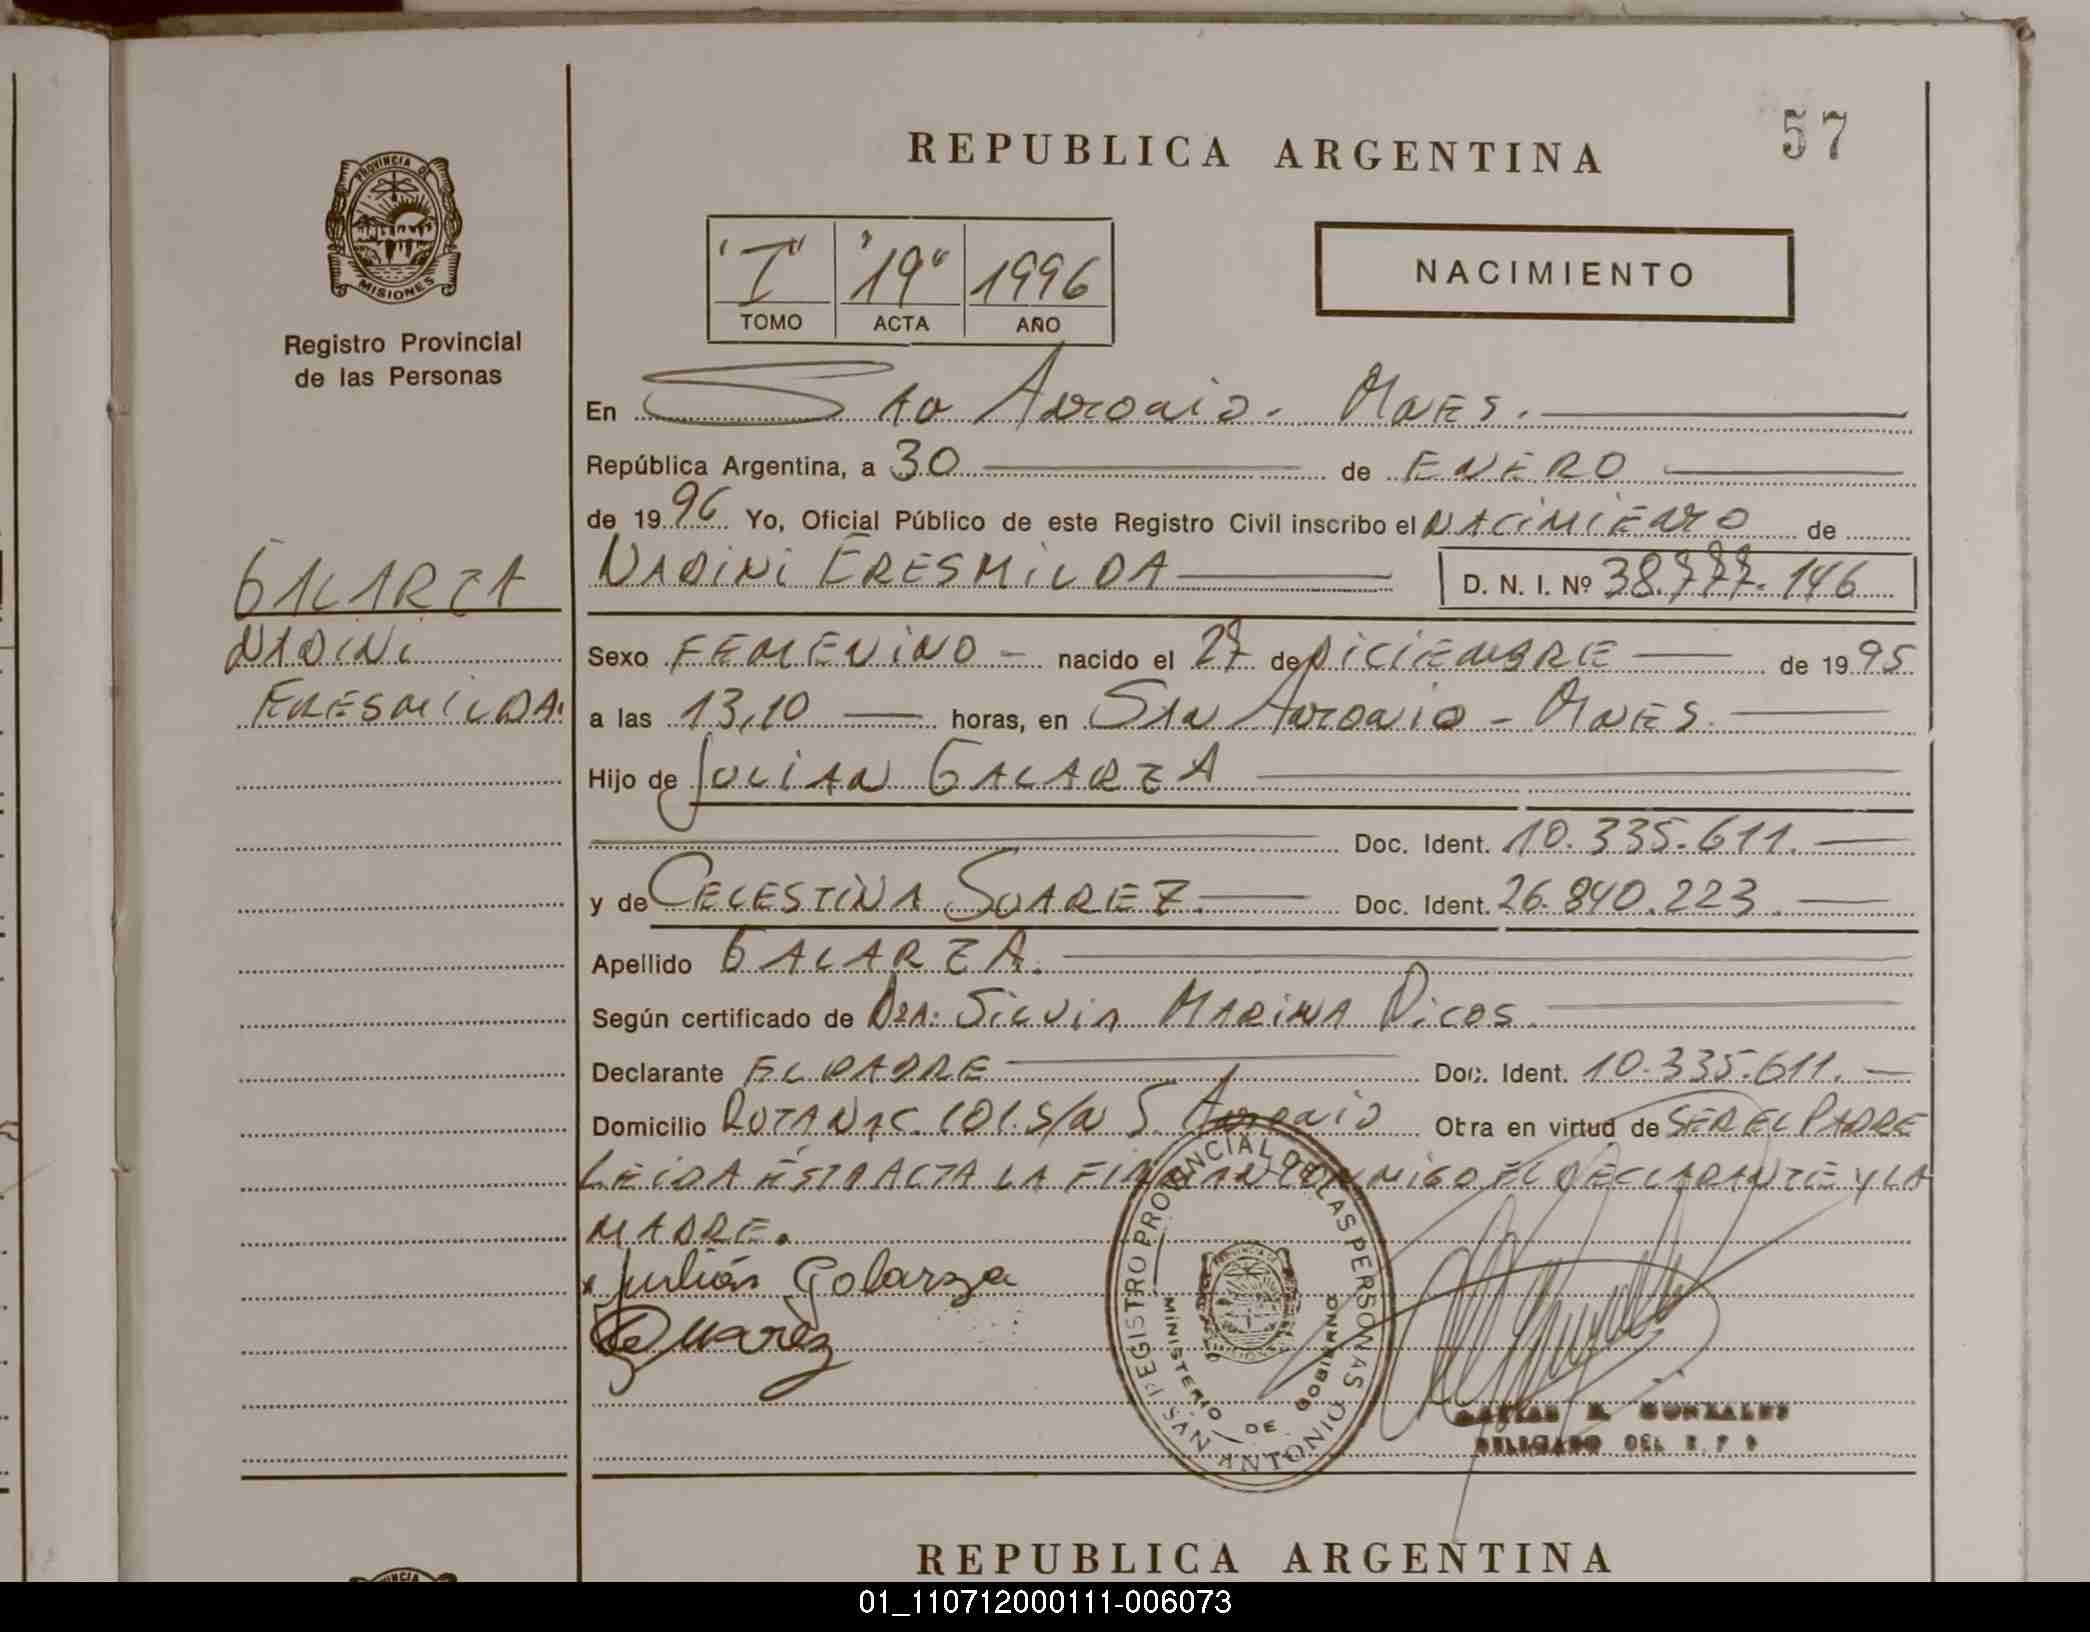 57
REPUBLICA ARGENTINA
PROVINCIA DE
MISIONES
Registro Provincial
de las Personas
"I" "19" 1996
TOMO ACTA AÑO
NACIMIENTO
En San Antonio - Mnes.
República Argentina, a 30 de ENERO
de 1996 Yo, Oficial Público de este Registro Civil inscribo el NACIMIENTO de
GALARZA
NADINI
ERESMILDA.
NADINI ERESMILDA D. N. I. Nº 38.777.146
Sexo FEMENINO - nacido el 27 de DICIEMBRE de 1995
a las 13,10 horas, en SAN ANTONIO - MNES.
Hijo de JULIAN GALARZA
Doc. Ident. 10.335.611.
y de CELESTINA SUAREZ Doc. Ident. 26.840.223.
Apellido GALARZA.
Según certificado de DRA: SILVIA MARINA
Declarante EL PADRE Doc. Ident. 10.335.611.
Domicilio RUTA NAC. 101. S/N S. ANTONIO Obra en virtud de SER EL PADRE
LEIDA ESTA ACTA LA FIRMAN CONMIGO EL DECLARANTE Y LA
MADRE.
Julián Galarza
Suarez
REGISTRO PROVINCIAL DE LAS PERSONAS
MINISTERIO DE GOBIERNO
SAN ANTONIO
GONZALES
DELEGADO DEL R P P
REPUBLICA ARGENTINA
01_110712000111-006073